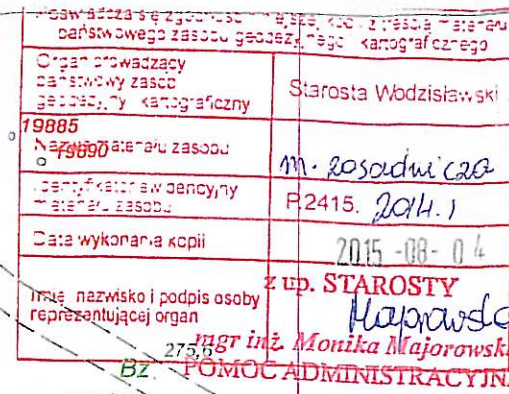 Poświadcza się zgodność niniejszej kopii z treścią materiału
państwowego zasobu geodezyjnego i kartograficznego
Organ prowadzący
państwowy zasób
geodezyjny i kartograficzny
Starosta Wodzisławski
19885
Nazwa materiału zasobu
19890
m. zasadnicza
Identyfikator ewidencyjny
materiału zasobu
P.2415. 2014.1
Data wykonania kopii
2015 -08- 04
z up. STAROSTY
Imię, nazwisko i podpis osoby
reprezentującej organ
mgr inż. Monika Majorowsk
275,6
Bz
POMOC ADMINISTRACYJN